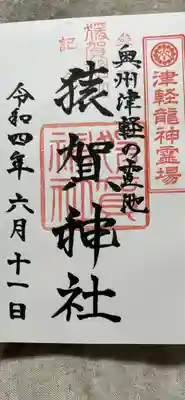 津軽龍神霊場
奥州津軽の霊地
猿賀神社
令和四年 六月十一日